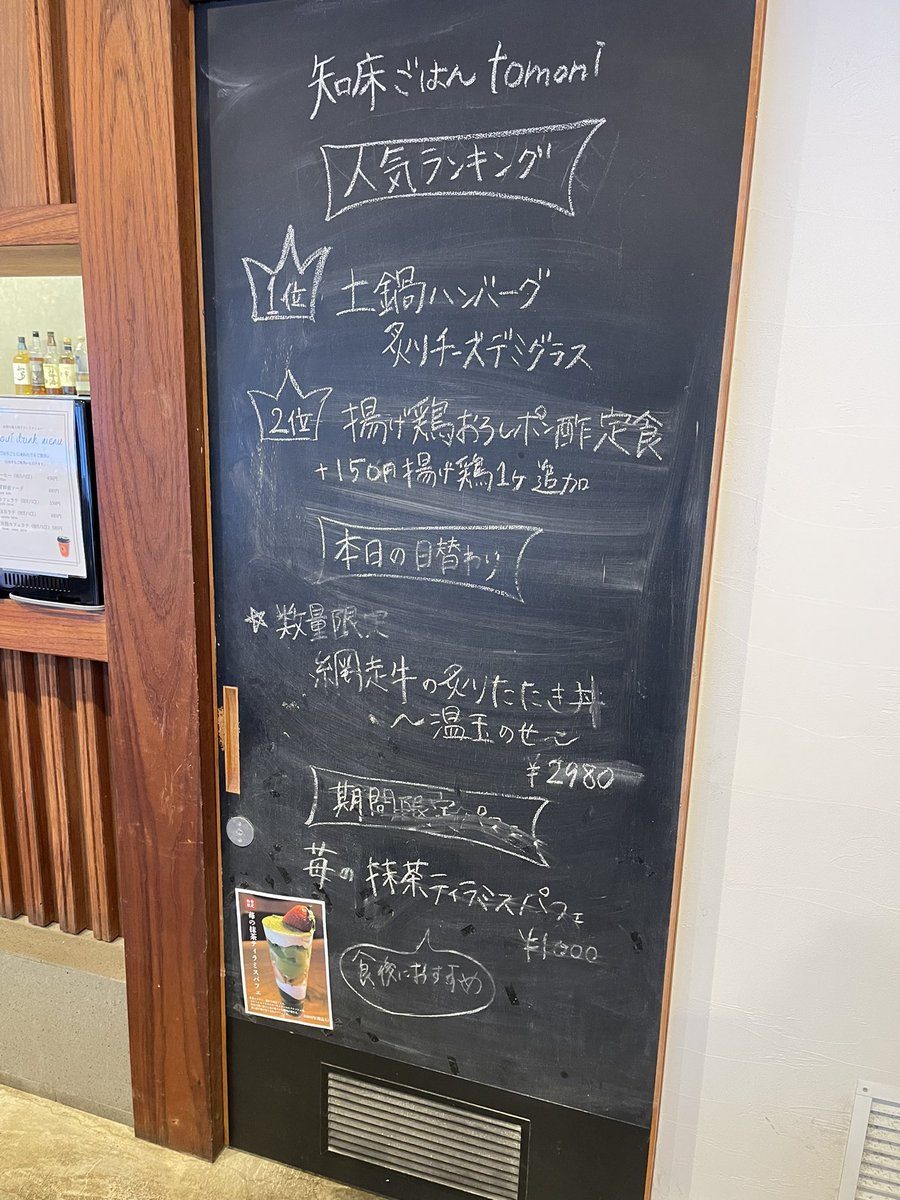 知床ごはん tomoni
人気ランキング
1位
土鍋ハンバーグ
炙りチーズデミグラス
2位
揚げ鶏おろしポン酢定食
+150円揚げ鶏1ヶ追加
本日の日替わり
☆数量限定
網走牛の炙りたたき丼
〜温玉のせ〜
¥2980
期間限定パフェ
苺の抹茶ティラミスパフェ
¥1000
食後におすすめ
苺の抹茶ティラミスパフェ
out drink menu